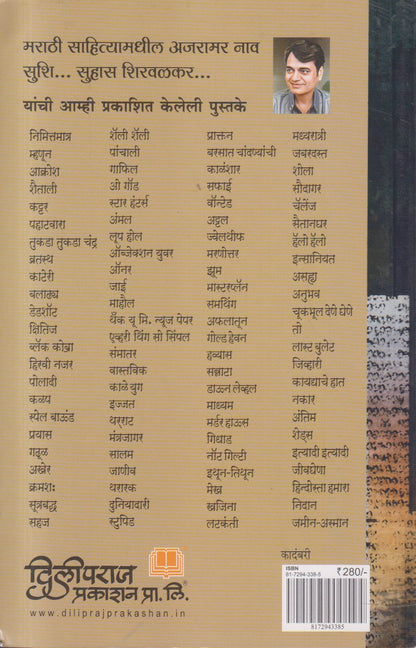 मराठी साहित्यामधील अजरामर नाव
सुशि... सुहास शिरवळकर...
यांची आम्ही प्रकाशित केलेली पुस्तके
निमित्तमात्र
म्हणून
आक्रोश
शैताली
कट्टर
पहाटवारा
तुकडा तुकडा चंद्र
व्रतस्थ
काटेरी
बलाढ्य
डेडशॉट
क्षितिज
ब्लॅक कोब्रा
हिरवी नजर
पोलादी
कळप
स्पेल बाऊंड
प्रयास
गढूळ
अखेर
क्रमशः
सूत्रबद्ध
सहज
शॅली शॅली
पांचाली
गाफिल
ओ गॉड
स्टार हंटर्स
अंमल
लूप होल
ऑब्जेक्शन युवर
ऑनर
जाई
माहौल
थँक यू मि. न्यूज पेपर
एव्हरी थिंग सी सिंपल
समांतर
वास्तविक
काळे युग
इज्जत
थरराट
मंत्रजागर
सालम
जाणीव
थरारक
दुनियादारी
स्टुपिड
प्राक्तन
बरसात चांदण्यांची
काळंशार
सफाई
वॉन्टेड
अट्टल
ज्वेलथीफ
मरणोत्तर
झूम
मास्टरप्लॅन
समथिंग
अफलातून
गोल्ड हेवन
हव्यास
सन्नाटा
डाऊन लेव्हल
माध्यम
मर्डर हाऊस
गिधाड
नॉट गिल्टी
इथून-तिथून
मेख
खजिना
लटकंती
मध्यरात्री
जबरदस्त
शोला
सौदागर
चॅलेंज
सैतानघर
हॅलो हॅलो
इन्सानियत
असह्य
अनुभव
चूकभूल देणे घेणे
तो
लास्ट बुलेट
जिव्हारी
कायद्याचे हात
नकार
अंतिम
शेड्स
इत्यादी इत्यादी
जीवघेणा
हिन्दोस्ता हमारा
निदान
जमीन-अस्मान
कादंबरी
दिलीपराज
प्रकाशन प्रा. लि.
www.diliprajprakashan.in
ISBN
81-7294-338-5
₹ 280/-
8172943385